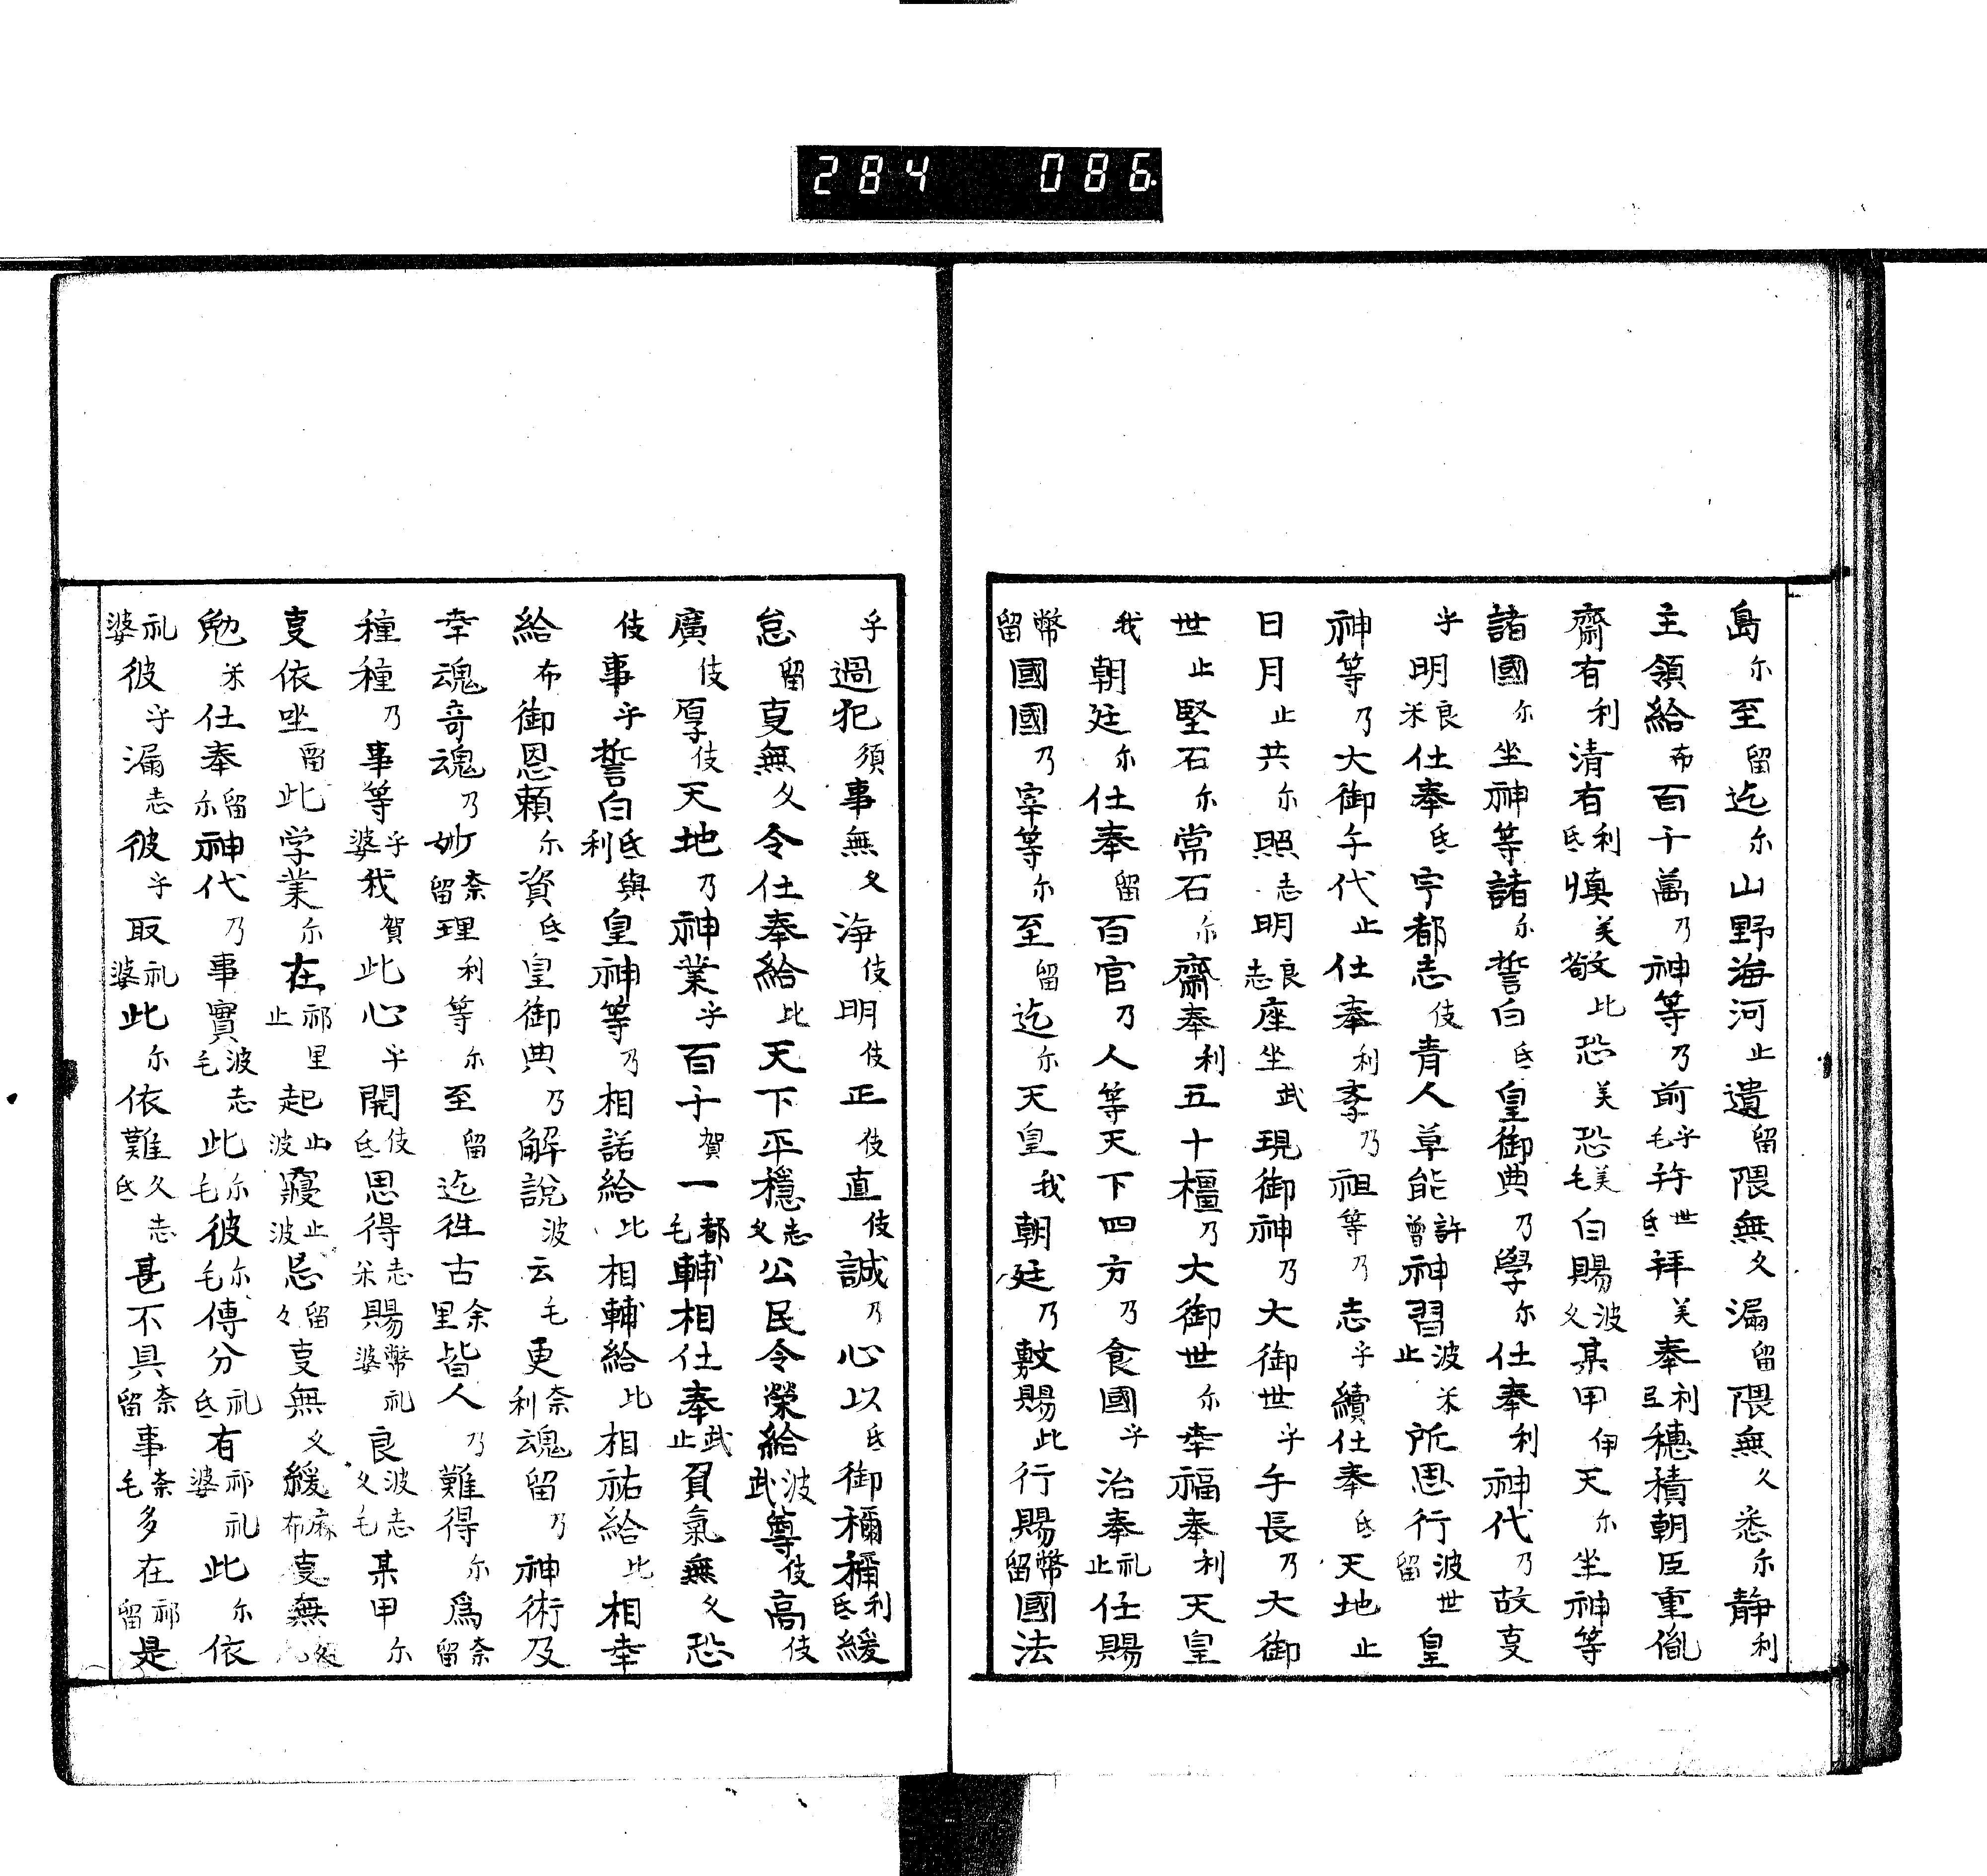 284 086
島尓至留迄尓山野海河止遺留隈無久漏留隈無久悉尓静利
主領給布百千萬乃神等乃前乎毛弁世氐拝美奉利弖穗積朝臣重胤
齋有利清有利氐慎美敬比恐美恐美毛白賜波久某甲伊天尓坐神等
諸國尓坐神等諸尓誓白氐皇御典乃學尓仕奉利神代乃故叓
乎明良米仕奉氐宇都志伎青人草能許曾神習波止米所思行波世留皇
神等乃大御手代止仕奉利孝乃祖等乃志乎續仕奉氐天地止
日月止共尓照志明良志座坐武現御神乃大御世乎手長乃大御
世止堅石尓常石尓齋奉利五十橿乃大御世尓幸福奉利天皇
我朝廷尓仕奉留百官乃人等天下四方乃食國乎治奉礼止任賜
幣留國國乃宰等尓至留迄尓天皇我朝廷乃敷賜比行賜幣留國法
乎過犯須事無久海伎明伎正伎直伎誠乃心以氐御禰禰利氐緩
怠留叓無久令仕奉給比天下平穩志久公民令榮給波武尊伎高伎
廣伎厚伎天地乃神業乎百千賀一都毛輔相仕奉武止負氣無久恐
伎事乎誓白氐利與皇神等乃相諾給比相輔給比相祐給比相幸
給布御恩頼尓資氐皇御典乃解説波云毛更奈利魂留乃神術及
幸魂奇魂乃妙奈留理利等尓至留迄徃古余里皆人乃難得尓爲奈留
種種乃事等乎婆我賀此心乎開伎氐思得志米賜幣婆礼良波久志毛某甲尓
叓依坐留此学業尓在祁止里起止波寢止波忌留々叓無久緩麻布叓無久
勉米仕奉留尓神代乃事實波毛志此尓毛彼尓毛傳分礼氐有祁婆礼此尓依
礼婆彼乎漏志彼乎取礼婆此尓依難久氐志甚不具奈留事奈毛多在祁留是